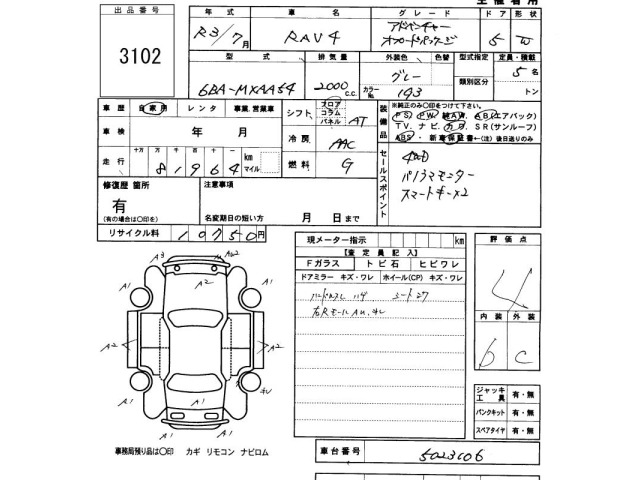 出品番号
3102
年式 車名 グレード ドア 形状
R3/7月 RAV4 アドベンチャー オフロードパッケージ 5 W
型式 排気量 外装色 色替 型式指定 定員・積載
6BA-MXAA54 2000 c.c. グレー
カラーNo 1G3 類別区分 5名
トン
車歴 自家用 レンタ 事業.営業車
車検 年 月
走行 十万 万 千 百 十 km
81964 マイル
シフト フロア コラム パネル AT
冷房 AAC
燃料 G
装備品 ※純正のみ〇印をつけて下さい。
PS PW 純AW ABI(エアバック)
TV.ナビ.カワ SR(サンルーフ)
ABS 新車保証書 (注)後日送りのみ
セールスポイント
4WD
パノラマモニター
スマートキー×2
修復歴 箇所
有
(有の場合は〇印を)
注意事項
名変期日の短い方 月 日まで
リサイクル料 10750円
現メーター指示 km
【査定員記入】
Fガラス トビ石 ヒビワレ
ドアミラー キズ・ワレ ホイール(CP) キズ・ワレ
シート
右Rモール AU.キレ
評価点
4
内装 外装
b C
A3 A2
A1 A2 A1
A2 A2
A1 A1
A1 A1
ジャッキ 工具 有・無
パンクキット 有・無
スペアタイヤ 有・無
事務局預り品は〇印 カギ リモコン ナビロム
車台番号 5023106